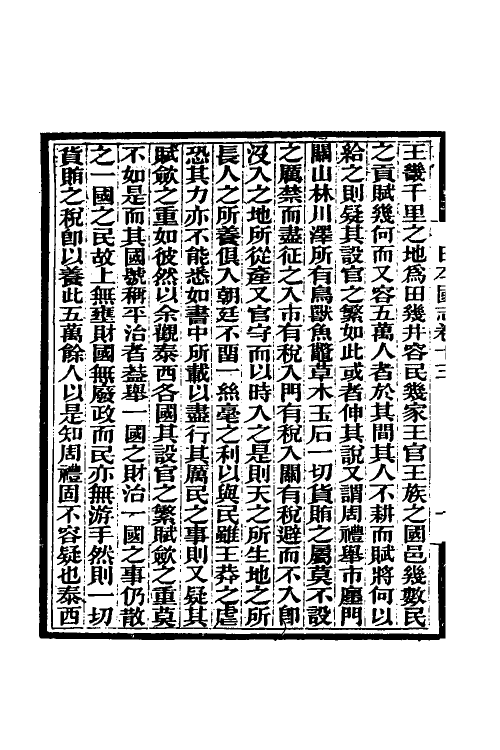 王畿千里之地為田幾井容民幾家王官王族之國邑幾數民
之貢賦幾何而又容五萬人者於其間其人不耕而賦將何以
給之則疑其設官之繁如此或者伸其說又謂周禮舉市廛門
關山林川澤所有鳥獸魚鼈草木玉石一切貨賄之屬莫不設
之厲禁而盡征之入市有稅入門有稅入關有稅避而不入卽
沒入之地所從產又官守而以時入之是則天之所生地之所
長人之所養俱入朝廷不畱一絲毫之利以與民雖王莽之虐
恐其力亦不能悉如書中所載以盡行其厲民之事則又疑其
賦斂之重如彼然以余觀泰西各國其設官之繁賦斂之重莫
不如是而其國號稱平治者葢舉一國之財治一國之事仍散
之一國之民故上無壅財國無廢政而民亦無游手然則一切
貨賄之稅卽以養此五萬餘人以是知周禮固不容疑也泰西
日本國志卷十三